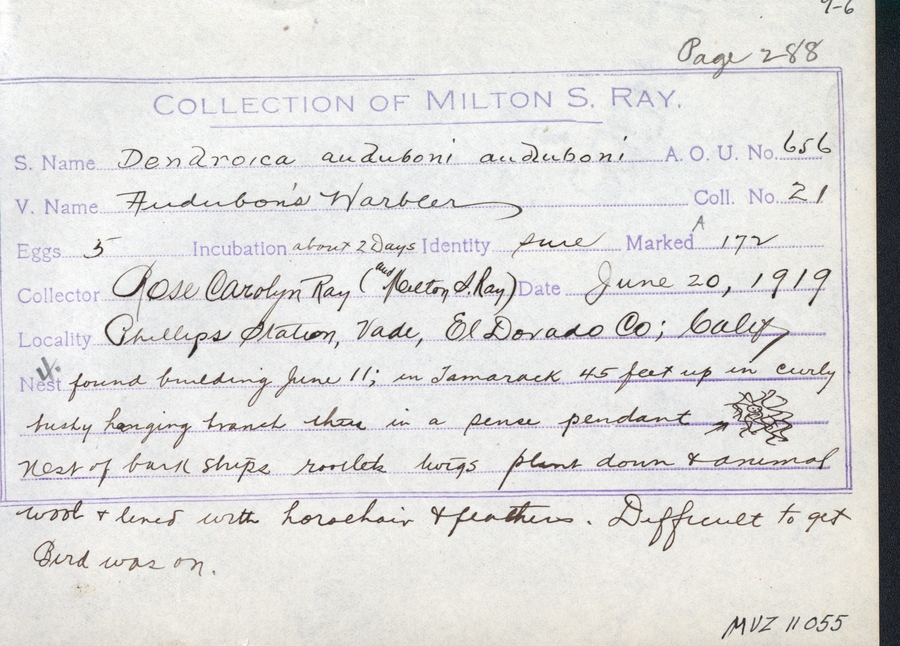 9-6
Page 288
COLLECTION OF MILTON S. RAY.
S. Name Dendroica auduboni auduboni A. O. U. No. 656
V. Name Audubon's Warbler Coll. No. 21
Eggs 5 Incubation about 2 Days Identity sure Marked A 172
Collector Rose Carolyn Ray (and Milton S. Ray) Date June 20, 1919
Locality Phillips Station, Vade, El Dorado Co; Calif
Nest found building June 11; in Tamarack 45 feet up in curly
bushy hanging branch thus in a sense pendant
Nest of bark strips rootlets twigs plant down & animal
wool & lined with horsehair & feathers. Difficult to get
Bird was on.
MVZ 11055